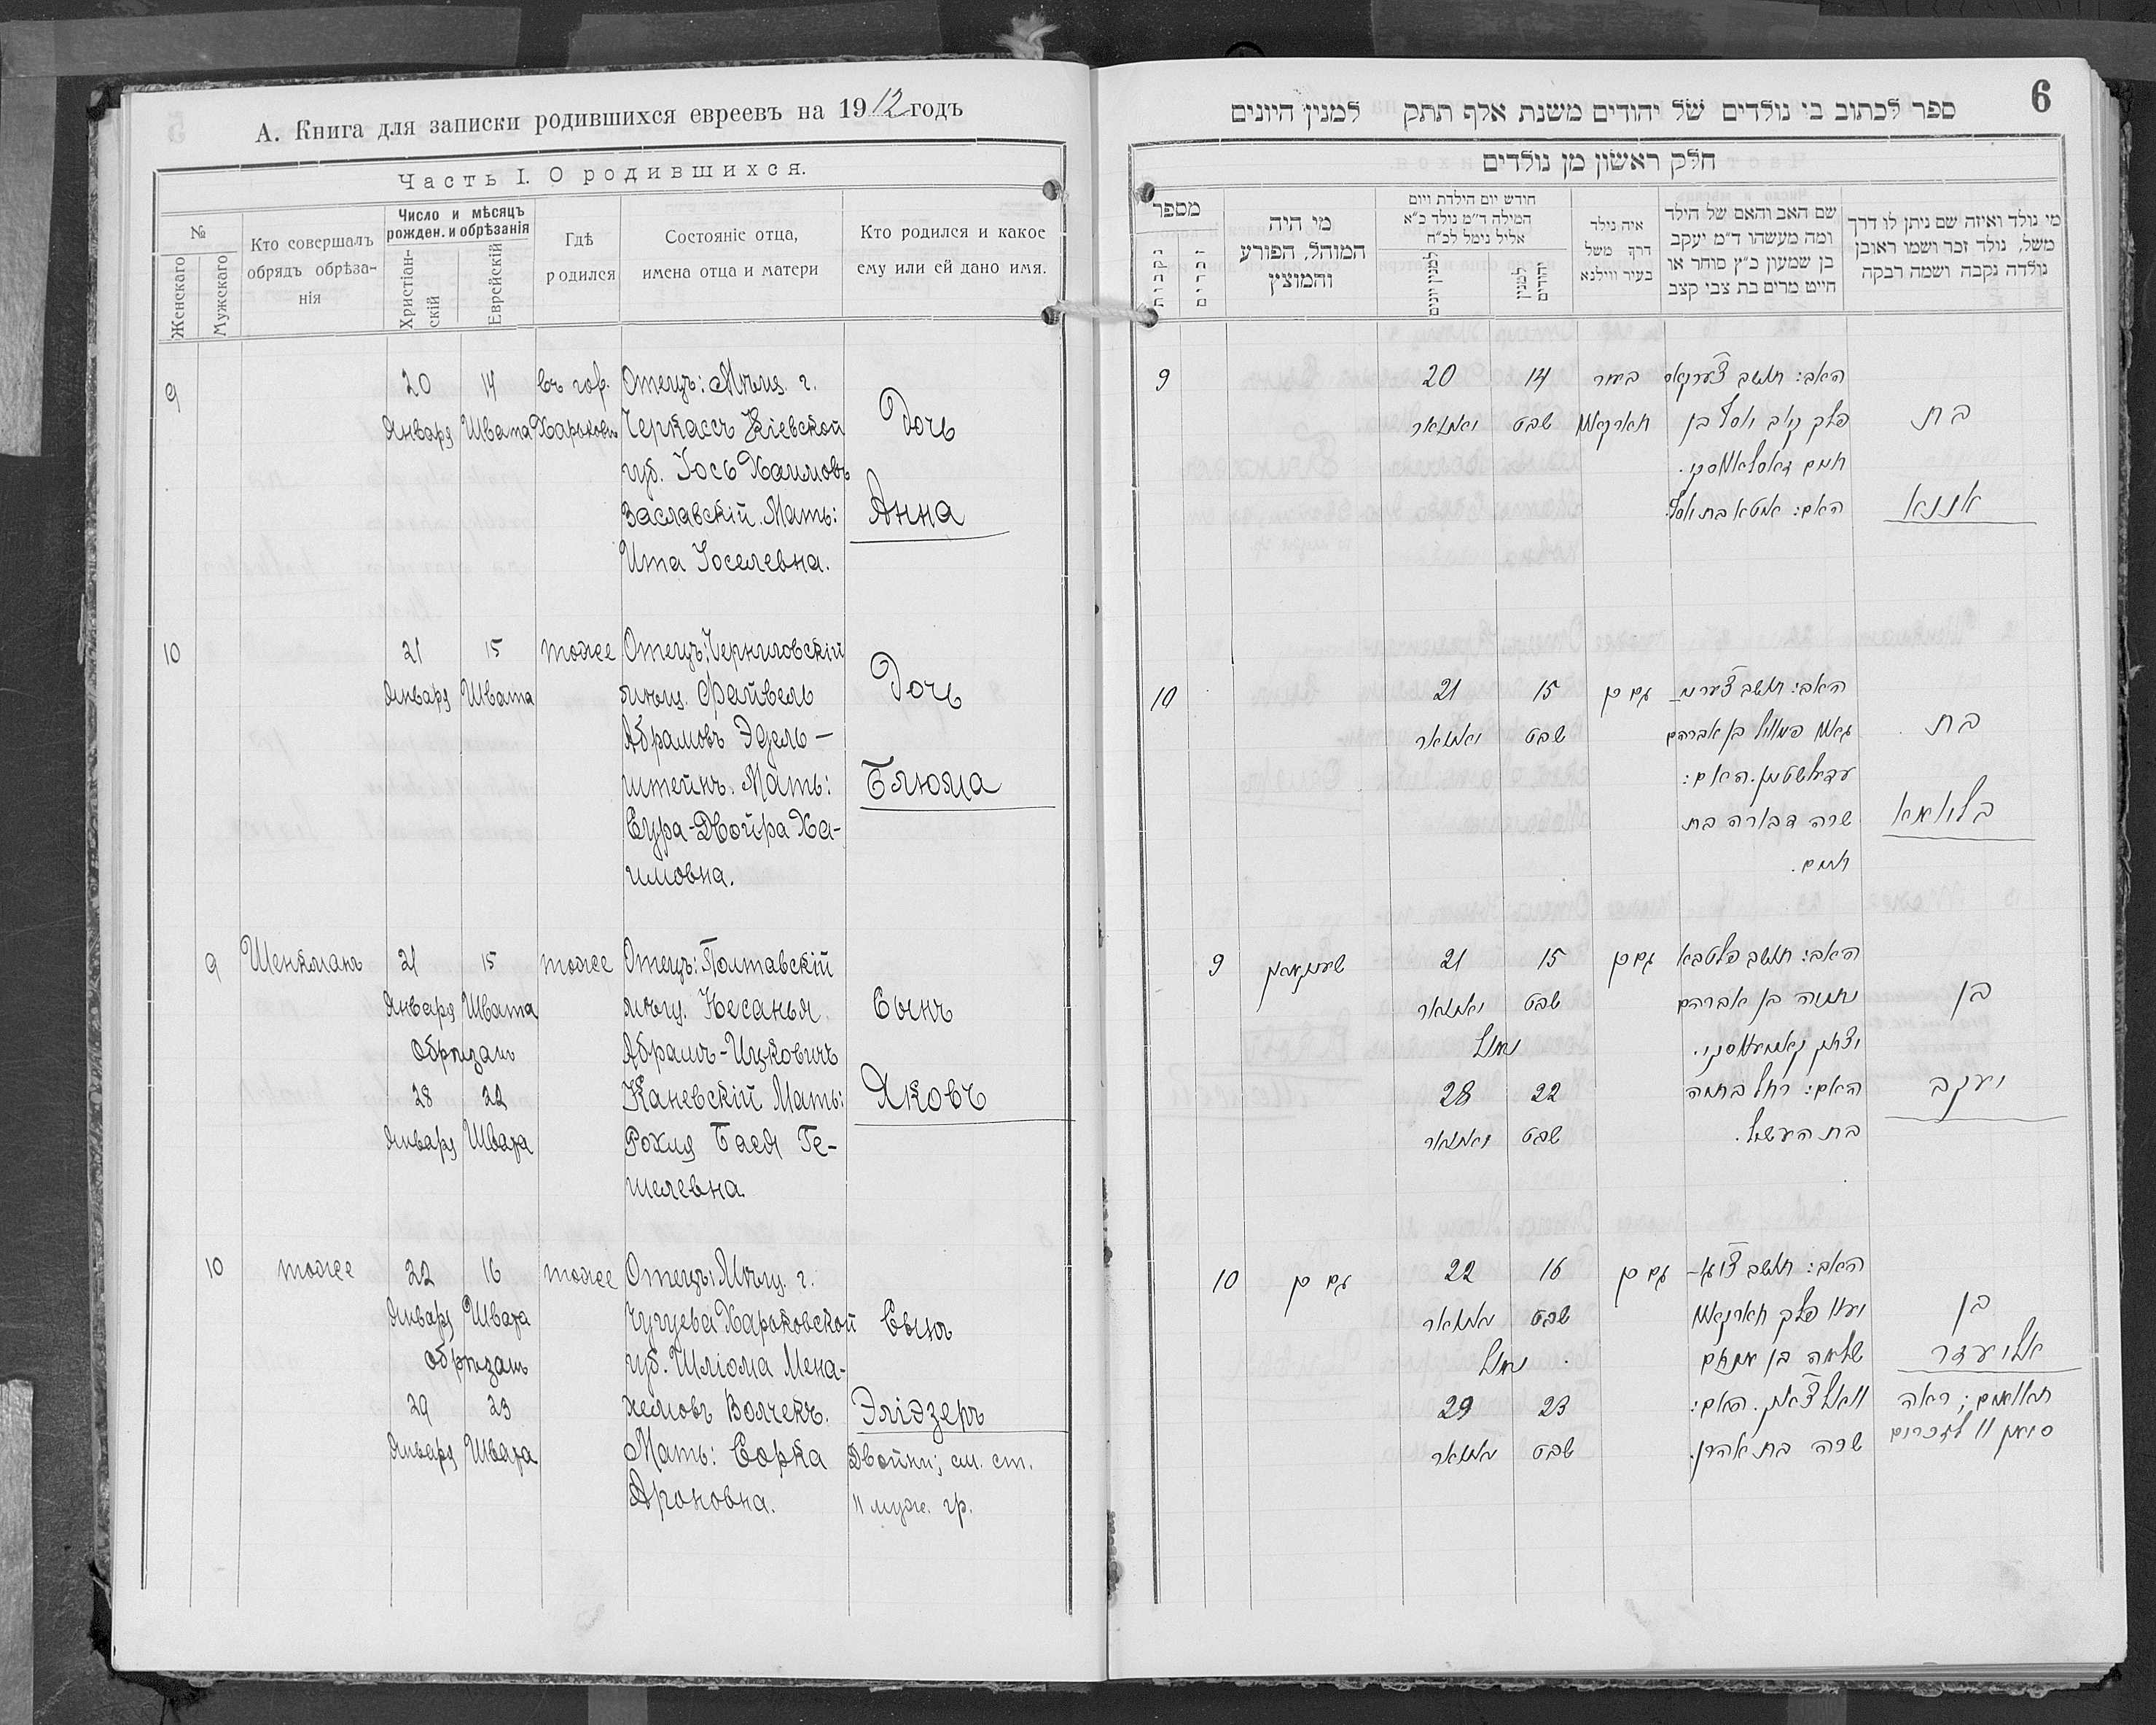 А. Книга для записки родившихся евреевъ на 1912 годъ
Часть I. О родившихся.
№
Женскаго
Мужскаго
Кто совершалъ
обрядъ обрѣза-
нія
Число и мѣсяцъ
рожден. и обрѣзанія
Христіан-
скій
Еврейскій
Гдѣ
родился
Состояніе отца,
имена отца и матери
Кто родился и какое
ему или ей дано имя.
9
20
Января
14
Швата
въ гор.
Харьковѣ
Отецъ: Мѣщ. г.
Черкассъ Кіевской
губ. Іось Хаимовъ
Заславскій. Мать:
Ита Іоселевна.
Дочь
Анна
10
21
Января
15
Швата
тоже
Отецъ: Черниговскій
мѣщ. Файвель
Абрамовъ Эдель-
штейнъ. Мать:
Сура-Двойра Ха-
имовна.
Дочь
Блюма
9
Шенкманъ
21
Января
15
Швата
Обрѣзанъ
28
Января
22
Швата
тоже
Отецъ: Полтавскій
мѣщ. Несанья
Абрамъ-Ицковичъ
Каневскій Мать:
Рохля Бася Ге-
шелевна.
Сынъ
Яковъ
10
тоже
22
Января
16
Швата
Обрѣзанъ
29
Января
23
Швата
тоже
Отецъ: Мѣщ. г.
Чугуева Харьковской
губ. Шліома Мена-
хемовъ Волчекъ.
Мать: Сорка
Ароновна.
Сынъ
Эліэзеръ
Двойни; см. ст.
11 муж. гр.
6
ספר לכתוב בו נולדים של יהודים משנת אלף תתק למנין היונים
חלק ראשון מן נולדים
מספר
נקבות
זכרים
מי היה
המוהל, הפורע
והמוצץ
חודש יום הילדת ויום
המילה ד״מ נולד כ״א
אליל נימל לכ״ח
למנין יונים
למנין
יהודים
איה נולד
דרך משל
בעיר ווילנא
שם האב והאם של הילד
ומה מעשהו ד״מ יעקב
בן שמעון כ״ץ סוחר או
חייט מרים בת צבי קצב
מי נולד ואיזה שם ניתן לו דרך
משל, נולד זכר ושמו ראובן
נולדה נקבה ושמה רבקה
9
20
יאנואר
14
שבט
בעיר
האב: תושב
פלך קיוב יוסף בן
חיים זאסלאווסקי.
האם: איטא בת יוסף.
בת
אננא
10
21
יאנואר
15
שבט
גם כן
האב: תושב
בן אברהם
עדילשטיין. האם:
שרה דבורה בת
חיים.
בת
בלומא
9
שענקמאן
21
יאנואר
15
שבט
נמול
28
יאנואר
22
שבט
גם כן
האב: תושב פלטבא
נתניה בן אברהם
יצחק קאניעווסקי.
האם: רחל בתיה
בת העשיל.
בן
יעקב
10
גם כן
22
יאנואר
16
שבט
נמול
29
יאנואר
23
שבט
גם כן
האב: תושב
פלך חארקאוו
שלמה בן מנחם
האם:
שרה בת אהרן.
בן
אליעזר
תאומים; ראה
סימן 11 לזכרים